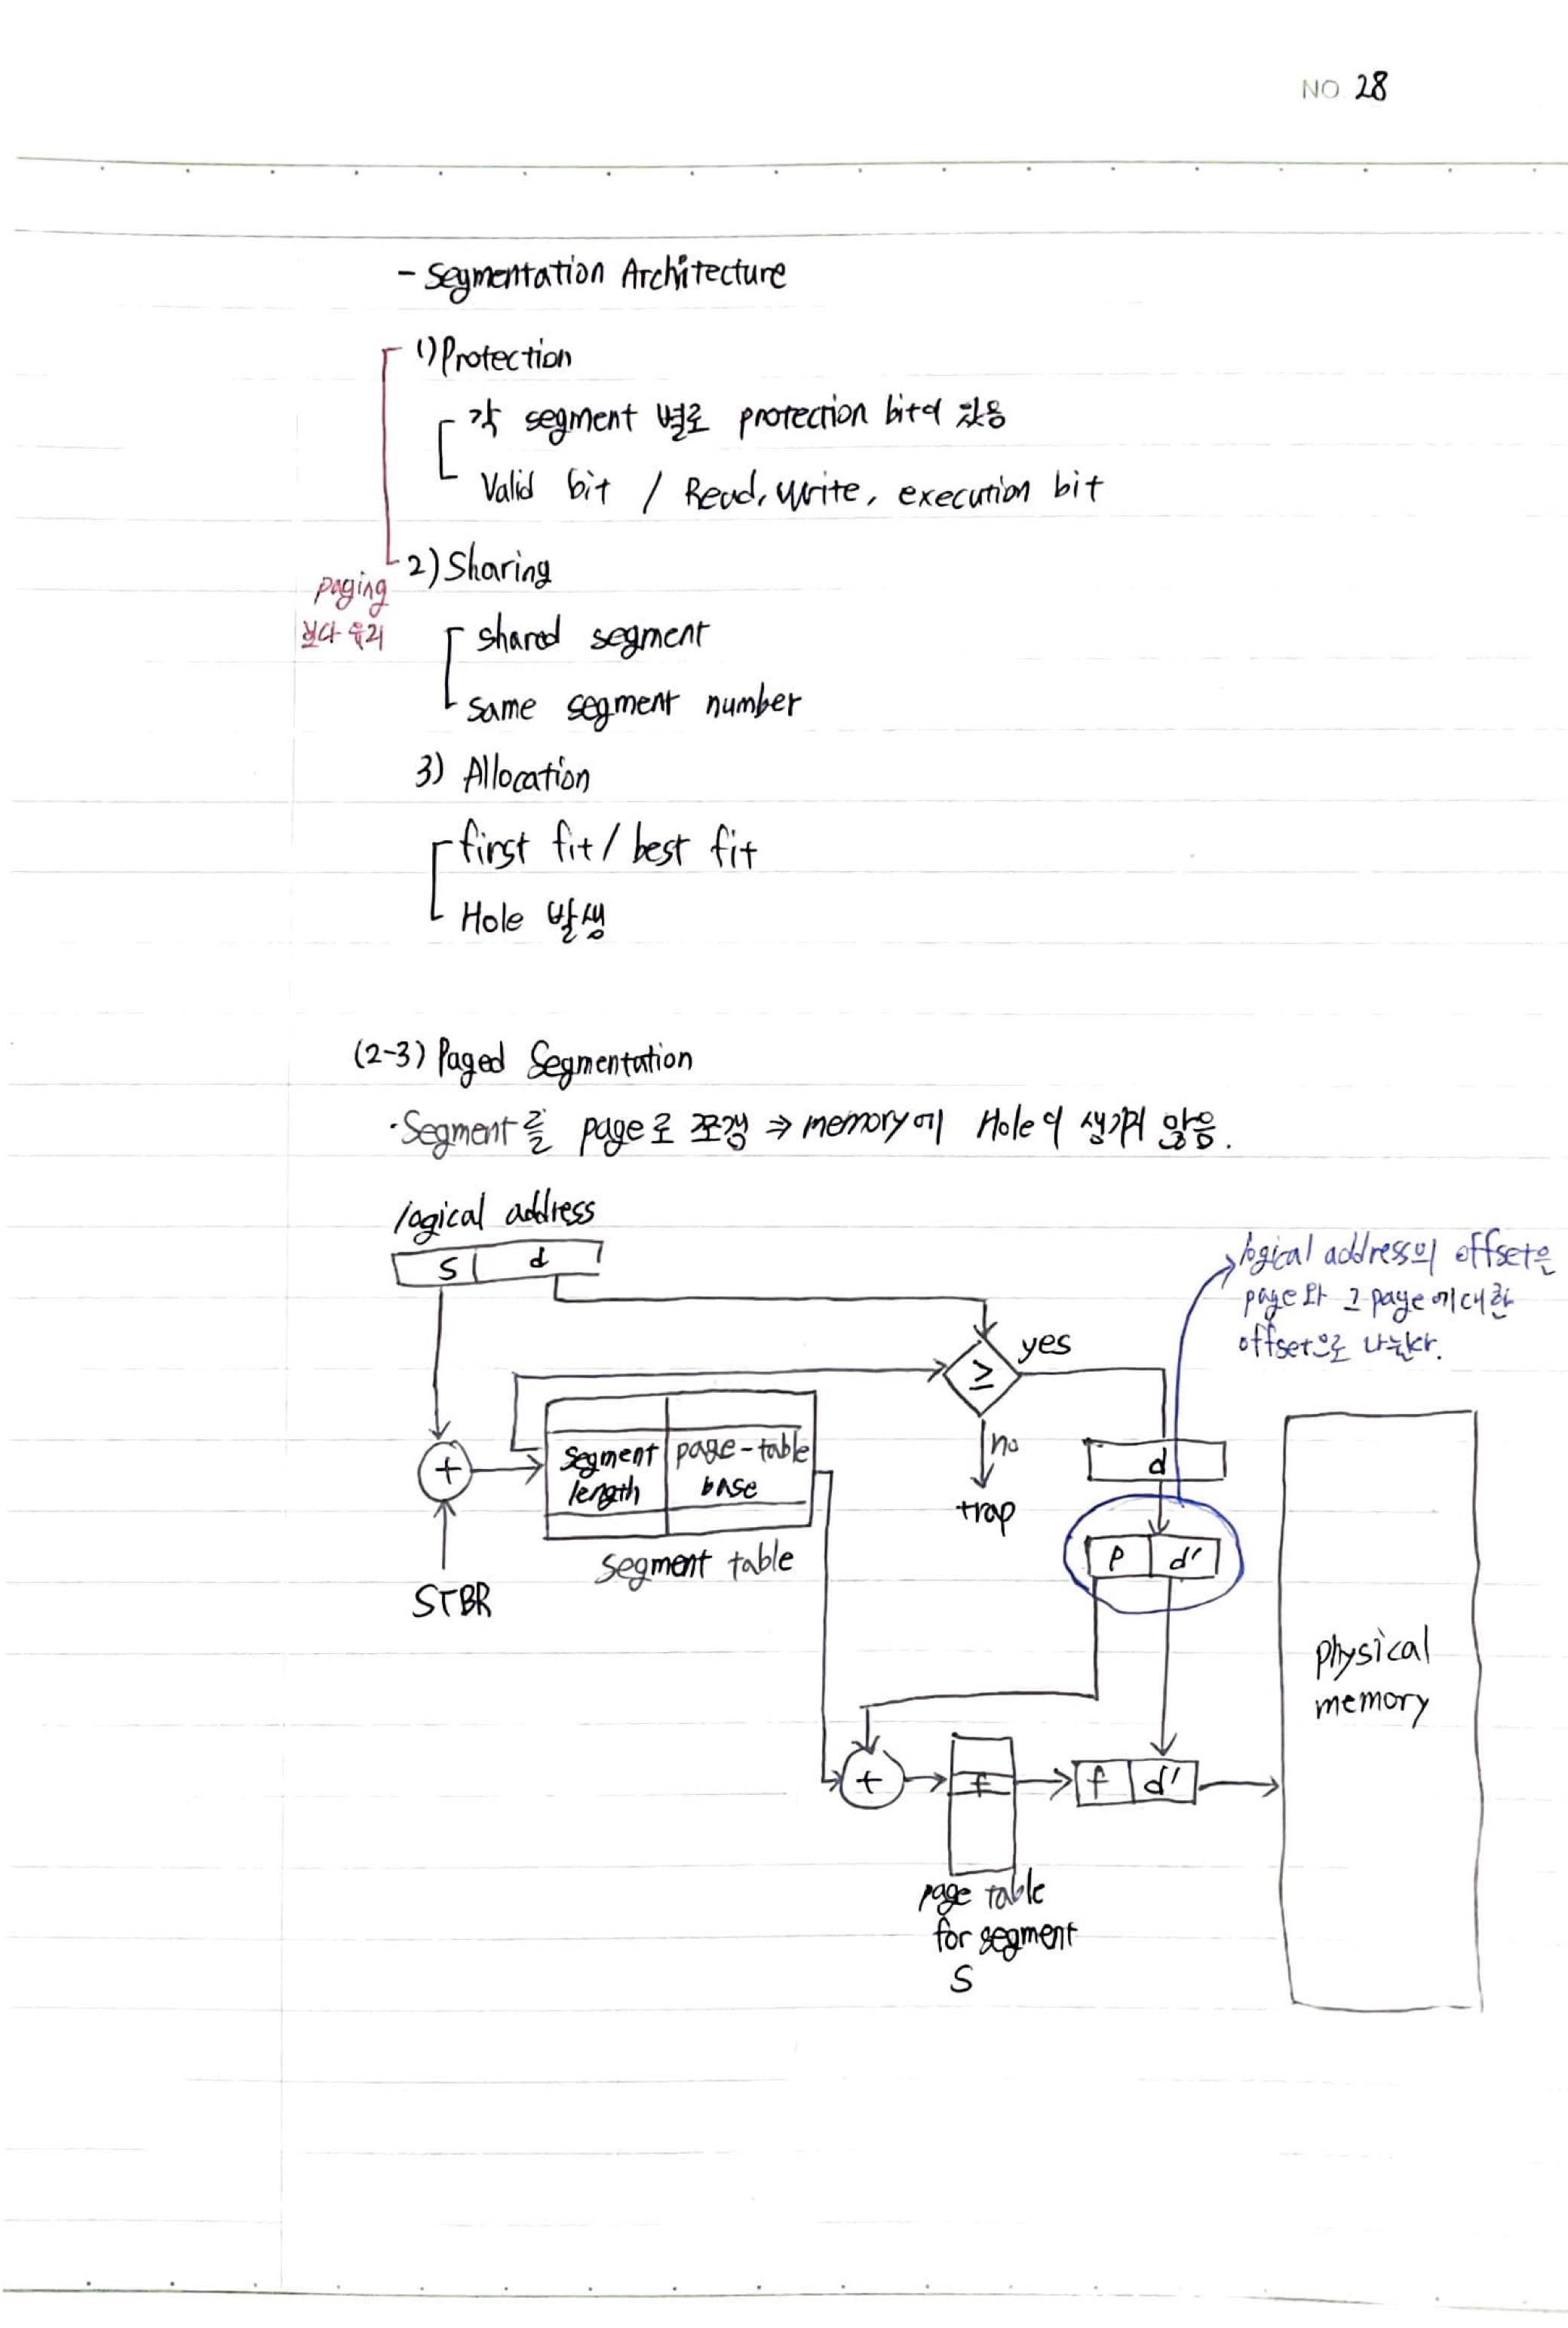 NO 28
- Segmentation Architecture
1) Protection
각 segment 별로 protection bit이 있음
Valid bit / Read, write, execution bit
2) Sharing
paging
보다 유리
shared segment
same segment number
3) Allocation
first fit / best fit
Hole 발생
(2-3) Paged Segmentation
·Segment를 page로 쪼갬 ⇒ memory에 Hole이 생기지 않음.
logical address
S d
logical address의 offset은
page와 그 page에 대한
offset으로 나뉜다.
≥ yes
no
trap
+
segment length
page-table base
segment table
STBR
d
p d'
physical
memory
+
f
f d'
page table
for segment
S